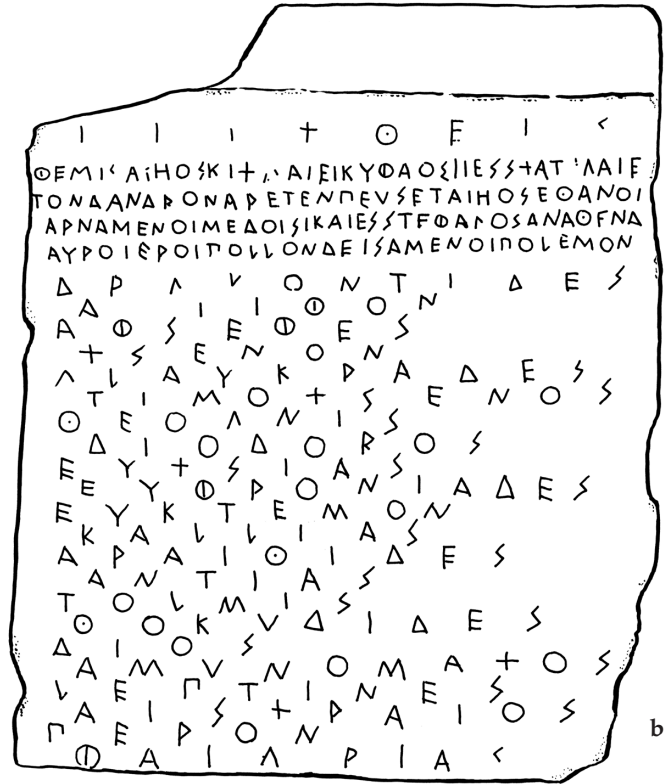 ΙΙΙΧΘΕΙΣ
ΦΕΜΙΣΑΙΗΟΣΚΙΧΑΙΕΙΚΥΦΑΟΣΙΙΕΣΣΧΑΤΛΑΙΕ
ΤΟΝΔΑΝΔΡΟΝΑΡΕΤΕΝΠΕΥΣΕΤΑΙΗΟΣΕΘΑΝΟΙ
ΑΡΝΑΜΕΝΟΙΜΕΔΟΙΣΙΚΑΙΕΣΣΤΕΦΑΛΟΣΑΝΑΘΕΝΑ
ΑΥΡΟΙΕΡΟΙΠΟΛΛΟΝΔΕΙΣΑΜΕΝΟΙΠΟΛΕΜΟΝ
ΔΡΛΥΟΝΤΙΔΕΣ
ΑΙΙΦΟΝ
ΑΦΣΕΦΕΣ
ΧΣΕΝΟΝ
ΛΛΑΥΚΡΑΔΕΣ
ΤΙΜΟΧΣΕΝΟΣ
ΘΕΟΛΝΙΣ
ΔΙΟΔΟΡΟΣ
ΕΥΧΣΙΑΣ
ΕΥΦΡΟΝΙΑΔΕΣ
ΕΥΚΤΕΜΟΝ
ΚΑΛΛΙΑΣ
ΑΡΑΙΘΙΔΕΣ
ΑΝΤΙΑΣ
ΤΟΛΜΙΣ
ΘΟΚΥΔΙΔΕΣ
ΔΙΟΣ
ΑΜΥΝΟΜΑΧΟΣ
ΛΕΠΤΙΝΕΣ
ΑΙΣΧΡΑΙΟΣ
ΠΕΡΟΝ
ΦΑΙΛΡΙΑΣ
b